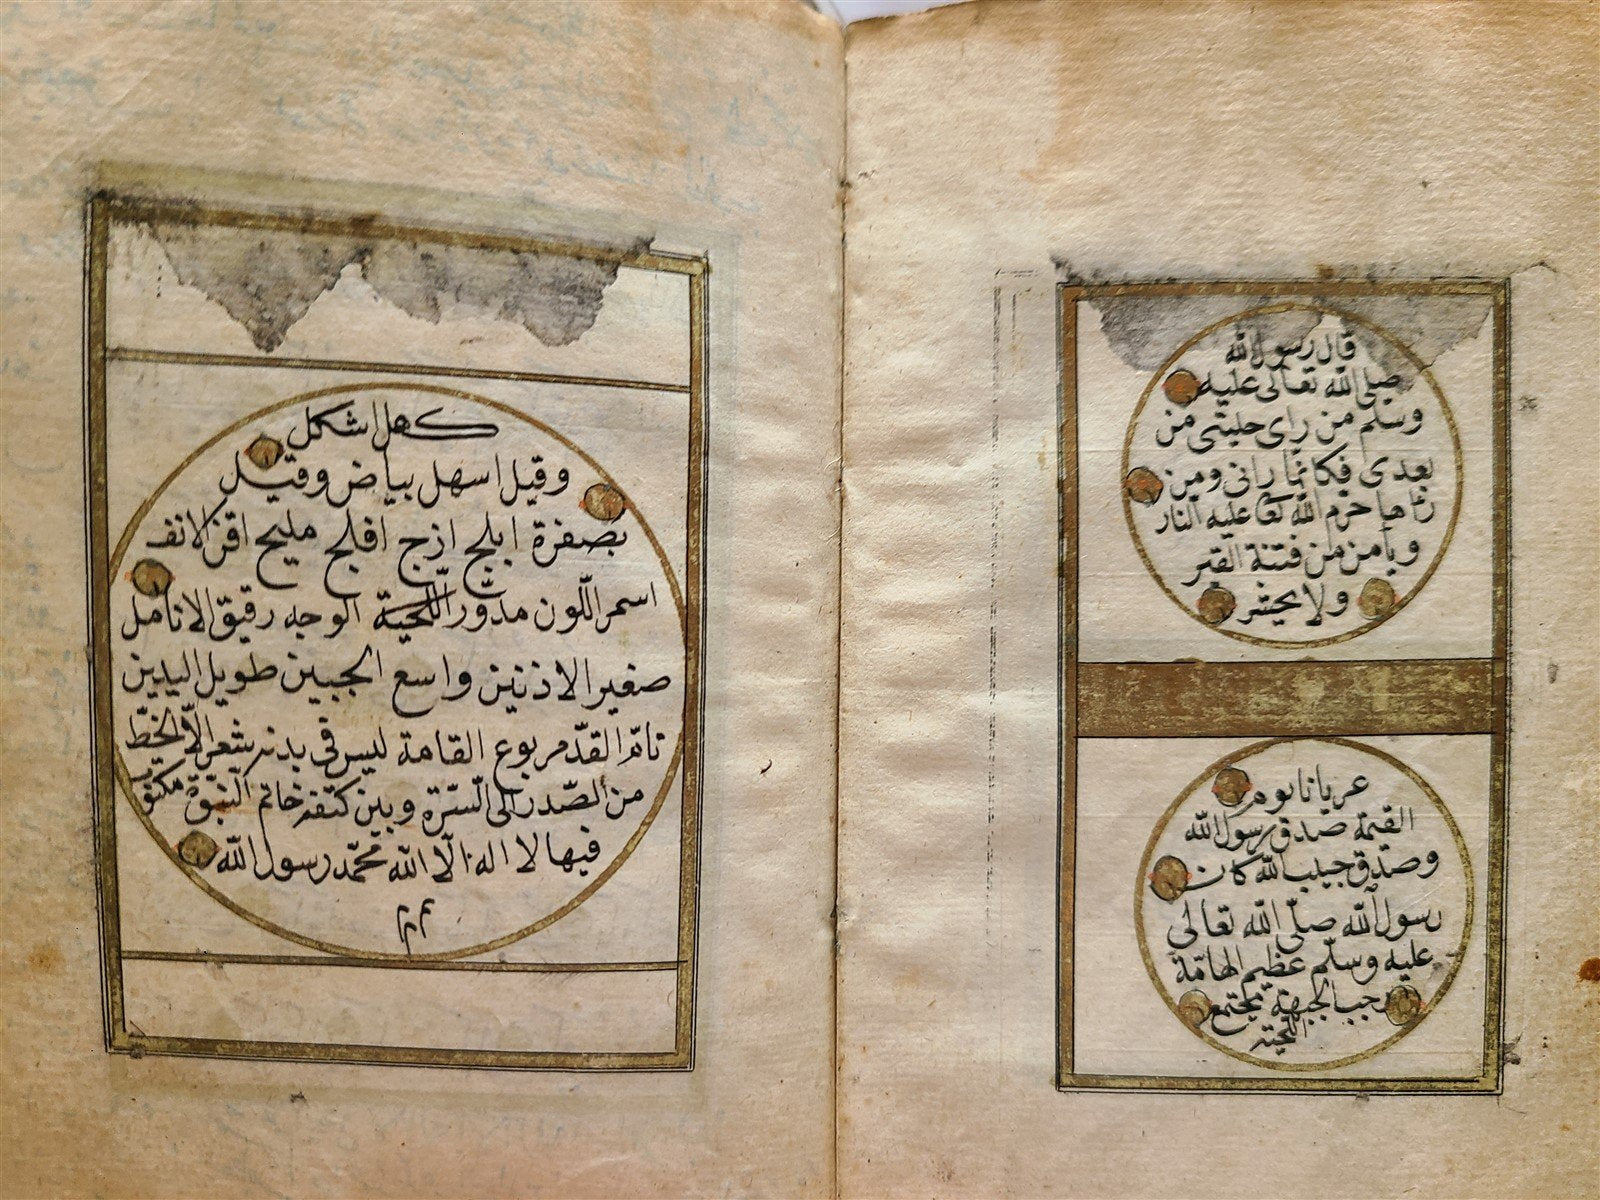 قال رسول الله
صلى الله تعالى عليه
وسلم من راى حليتى من
بعدى فكانما رانى ومن
رآها حرم الله تعا عليه النار
ويأمن من فتنة القبر
ولا يحشر
عريانا يوم
القيمة صدق رسول الله
وصدق حبيب الله كان
رسول الله صلّى الله تعالى
عليه وسلّم عظيم الهامّة
رحب الجبهة مجتمع
اللحية
كهل اشكل
وقيل اسهل بياض وقيل
بصفرة ابلج ازج افلج مليح اقنى الانف
اسمر اللّون مدوّر اللّحية الوجه رقيق الانامل
صغير الاذنين واسع الجبين طويل اليدين
تامّ القدّ مربوع القامة ليس فى بدنه شعر الّا الخطّ
من الصّدر الى السّرّة وبين كتفه خاتم النّبوّة مكتوب
فيها لا اله الّا الله محمّد رسول الله